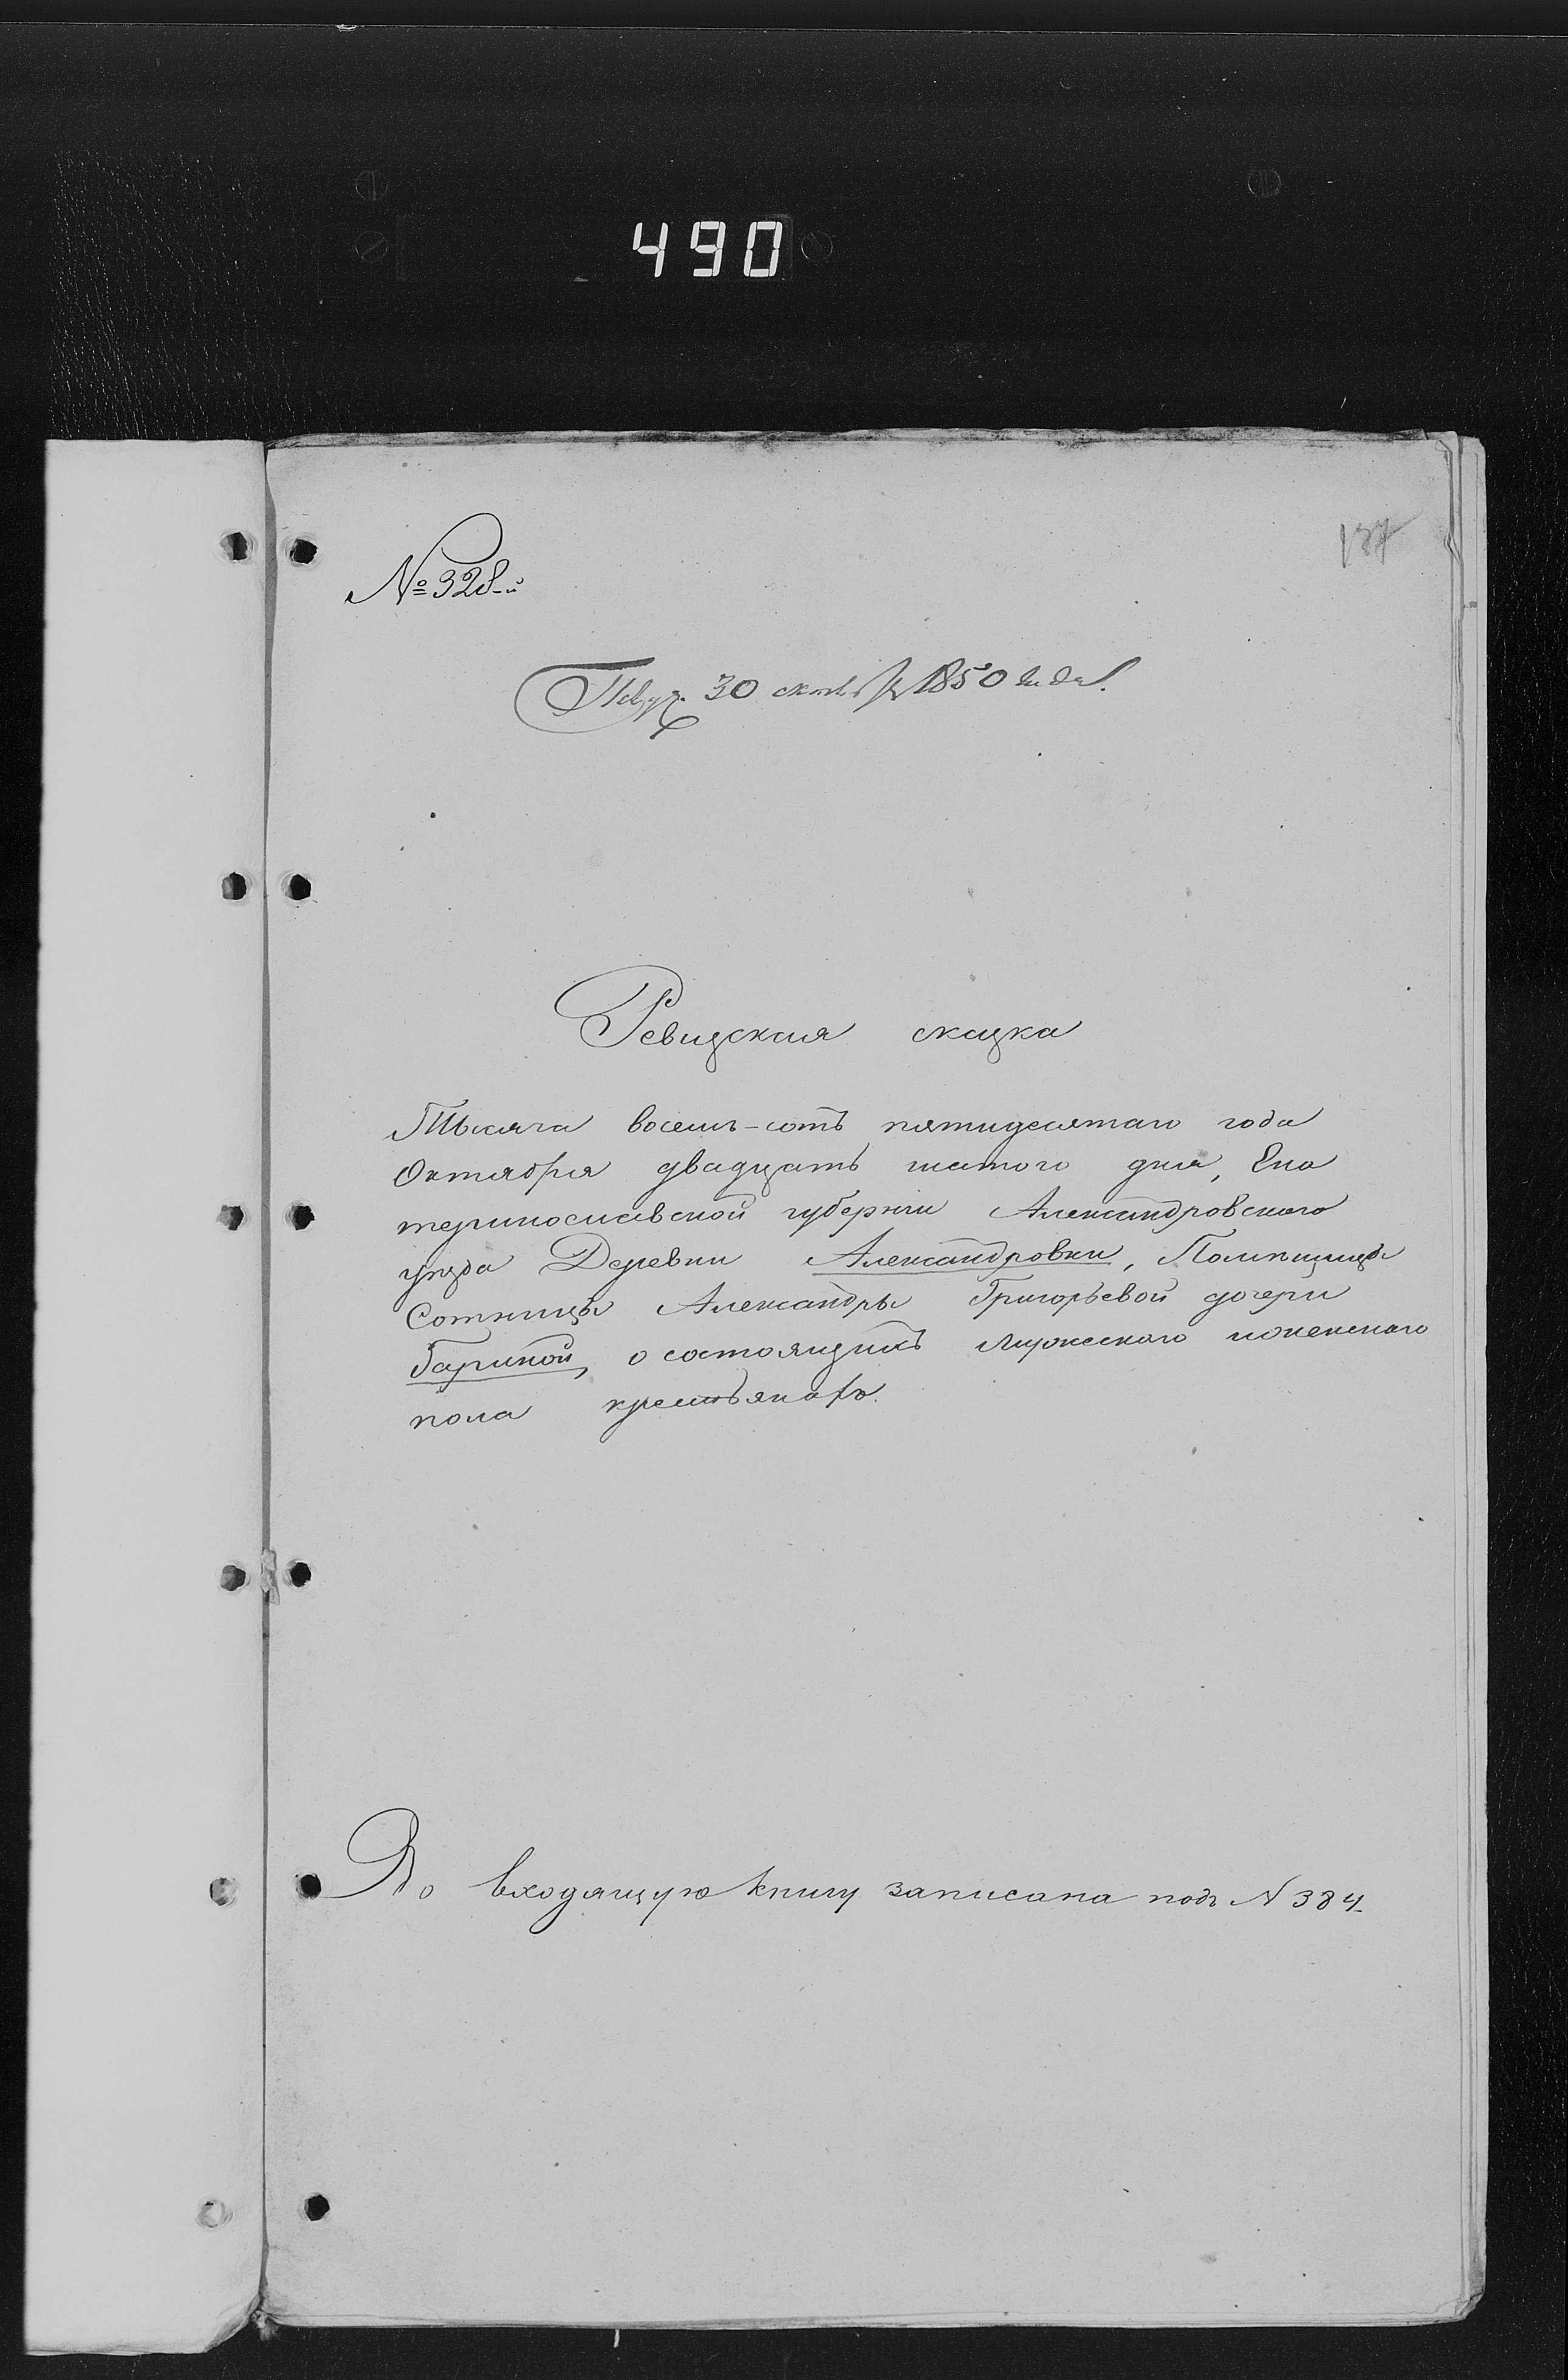 490
137
№ 328-й
30 октября 1850 года.
Ревизская сказка
Тысяча восемь-сотъ пятидесятаго года
Октября двадцать шестого дня, Ека
теринославской губернии Александровского
уезда Деревни Александровки, Помещицы
Сотницы Александры Григорьевой дочери
Бариной, о состоящихъ мужескаго и женскаго
пола крестьянахъ.
Во входящую книгу записана подъ N 384